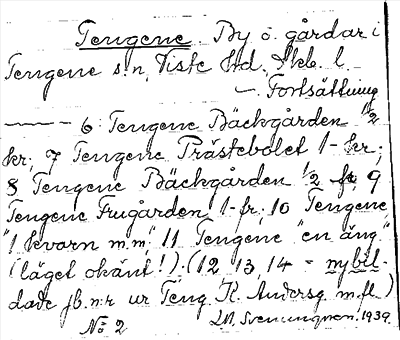 Tengene. By o. gårdar i
Tengene s:n, Viste hd. Skb. l.
— Fortsättning
——— 6: Tengene Bäckgården 1/2
kr. 7 Tengene Prästebolet 1-kr;
8 Tengene Bäckgården 1/2 fr, 9
Tengene Frugården, 1-fr; 10 Tengene,
"1 kvarn m.m", 11 Tengene "en äng"
(läget okänt!). (12, 13, 14 = nybil-
dade jb.n:r ur Teng. K. Andersg. m.fl.)
No 2 1939.